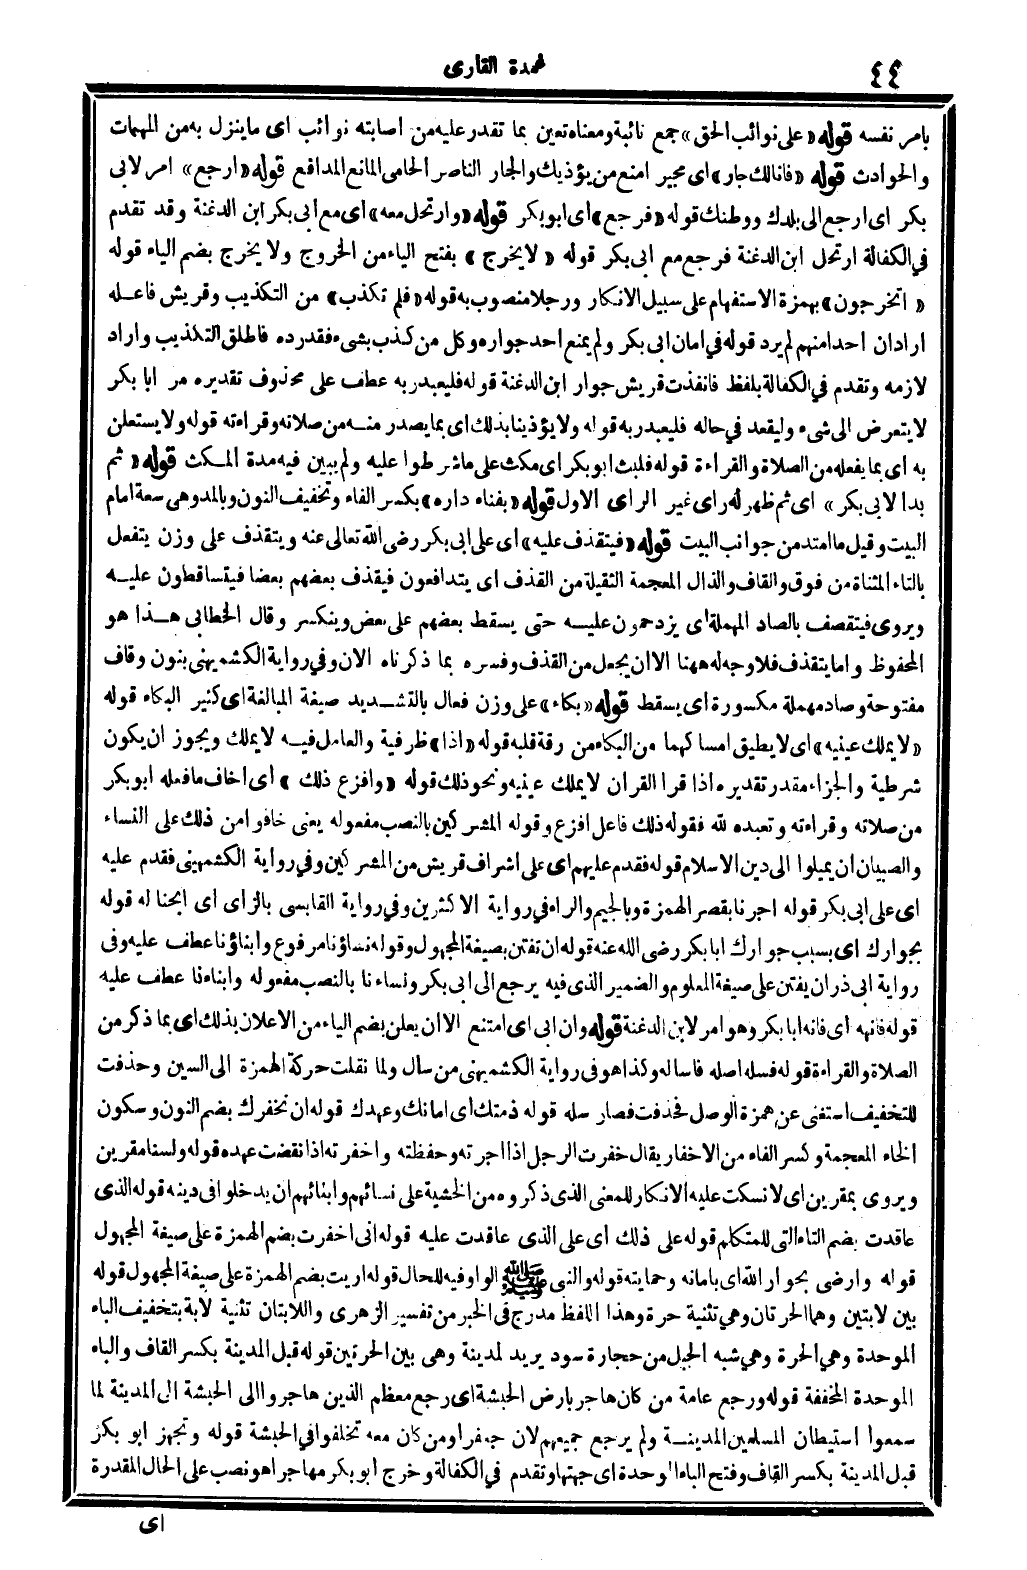 ٤٤
عمدة القارى
بامر نفسه قوله «على نوائب الحق» جمع نائبة ومعناه تعين بما تقدر عليه من اصابته نوائب اى ما ينزل به من المهمات
والحوادث قوله «فانا لك جار» اى مجير امنع من يؤذيك والجار الناصر الحامى المانع المدافع قوله «ارجع» امر لابى
بكر اى ارجع الى بلدك ووطنك قوله «فرجع» اى ابو بكر قوله «وارتحل معه» اى مع ابى بكر ابن الدغنة وقد تقدم
فى الكفالة ارتحل ابن الدغنة فرجع مع ابى بكر قوله «لا يخرج» بفتح الياء من الخروج ولا يخرج بضم الياء قوله
«اتخرجون» بهمزة الاستفهام على سبيل الانكار ورجلا منصوب به قوله «فلم تكذب» من التكذيب وقريش فاعله
اراد ان احدا منهم لم يرد قوله فى امان ابى بكر ولم يمنع احد جواره وكل من كذب بشىء فقد رده فاطلق التكذيب واراد
لازمه وتقدم فى الكفالة بلفظ فانفذت قريش جوار ابن الدغنة قوله فليعبد ربه عطف على محذوف تقديره مر ابا بكر
لا يتعرض الى شىء وليقعد فى حاله فليعبد ربه قوله ولا يؤذينا بذلك اى بما يصدر منه من صلاته وقراءته قوله ولا يستعلن
به اى بما يفعله من الصلاة والقراءة قوله فلبث ابو بكر اى مكث على ما شرطوا عليه ولم يبين فيه مدة المكث قوله «ثم
بدا لابى بكر» اى ثم ظهر له راى غير الراى الاول قوله «بفناء داره» بكسر الفاء وتخفيف النون وبالمد وهى سعة امام
البيت وقيل ما امتد من جوانب البيت قوله «فيتقذف عليه» اى على ابى بكر رضى الله تعالى عنه ويتقذف على وزن يتفعل
بالتاء المثناة من فوق والقاف والذال المعجمة الثقيلة من القذف اى يتدافعون فيقذف بعضهم بعضا فيتساقطون عليه
ويروى فيتقصف بالصاد المهملة اى يزدحمون عليه حتى يسقط بعضهم على بعض وينكسر وقال الخطابى هذا هو
المحفوظ واما يتقذف فلا وجه له ههنا الا ان يجعل من القذف وفسره بما ذكرناه الان وفى رواية الكشميهنى بنون وقاف
مفتوحة وصاد مهملة مكسورة اى يسقط قوله «بكاء» على وزن فعال بالتشديد صيغة المبالغة اى كثير البكاء قوله
«لا يملك عينيه» اى لا يطيق امساكهما من البكاء من رقة قلبه قوله «اذا» ظرفية والعامل فيه لا يملك ويجوز ان يكون
شرطية والجزاء مقدر تقديره اذا قرا القران لا يملك عينيه ونحو ذلك قوله «وافزع ذلك» اى اخاف ما فعله ابو بكر
من صلاته وقراءته وتعبده لله فقوله ذلك فاعل افزع وقوله المشركين بالنصب مفعوله يعنى خافوا من ذلك على النساء
والصبيان ان يميلوا الى دين الاسلام قوله فقدم عليهم اى على اشراف قريش من المشركين وفى رواية الكشمهينى فقدم عليه
اى على ابى بكر قوله اجرنا بقصر الهمزة وبالجيم والراء فى رواية الاكثرين وفى رواية القابسى بالزاى اى ابحنا له قوله
بجوارك اى بسبب جوارك ابا بكر رضى الله عنه قوله ان تفتن بصيغة المجهول وقوله نساؤنا مرفوع وابناؤنا عطف عليه وفى
رواية ابى ذر ان يفتن على صيغة المعلوم والضمير الذى فيه يرجع الى ابى بكر ونساءنا بالنصب مفعوله وابناءنا عطف عليه
قوله فانهه اى فانه ابا بكر وهو امر لابن الدغنة قوله وان ابى اى امتنع الا ان يعلن بضم الياء من الاعلان بذلك اى بما ذكر من
الصلاة والقراءة قوله فسله اصله فاساله وكذا هو فى رواية الكشميهنى من سال ولما نقلت حركة الهمزة الى السين وحذفت
للتخفيف استغنى عن همزة الوصل فحذفت فصار سله قوله ذمتك اى امانك وعهدك قوله ان نخفرك بضم النون وسكون
الخاء المعجمة وكسر الفاء من الاخفار يقال خفرت الرجل اذا اجرته وحفظته واخفرته اذا نقضت عهده قوله ولسنا مقرين
ويروى بمقرين اى لا نسكت عليه الانكار للمعنى الذى ذكروه من الخشية على نسائهم وابنائهم ان يدخلوا فى دينه قوله الذى
عاقدت بضم التاء التى للمتكلم قوله على ذلك اى على الذى عاقدت عليه قوله انى اخفرت بضم الهمزة على صيغة المجهول
قوله وارضى بجوار الله اى بامانه وحمايته قوله والنبى ﷺ الواو فيه للحال قوله اريت بضم الهمزة على صيغة المجهول قوله
بين لابتين وهما الحرتان وهى تثنية حرة وهذا اللفظ مدرج فى الخبر من تفسير الزهرى واللابتان تثنية لابة بتخفيف الباء
الموحدة وهى الحرة وهى شبه الجبل من حجارة سود يريد لمدينة وهى بين الحرتين قوله قبل المدينة بكسر القاف والباء
الموحدة المخففة قوله ورجع عامة من كان هاجر بارض الحبشة اى رجع معظم الذين هاجروا الى الحبشة الى المدينة لما
سمعوا استيطان المسلمين المدينة ولم يرجع جميعهم لان جعفرا ومن كان معه تخلفوا فى الحبشة قوله وتجهز ابو بكر
قبل المدينة بكسر القاف وفتح الباء الوحدة اى جهتها وتقدم فى الكفالة وخرج ابو بكر مهاجرا هو نصب على الحال المقدرة
اى